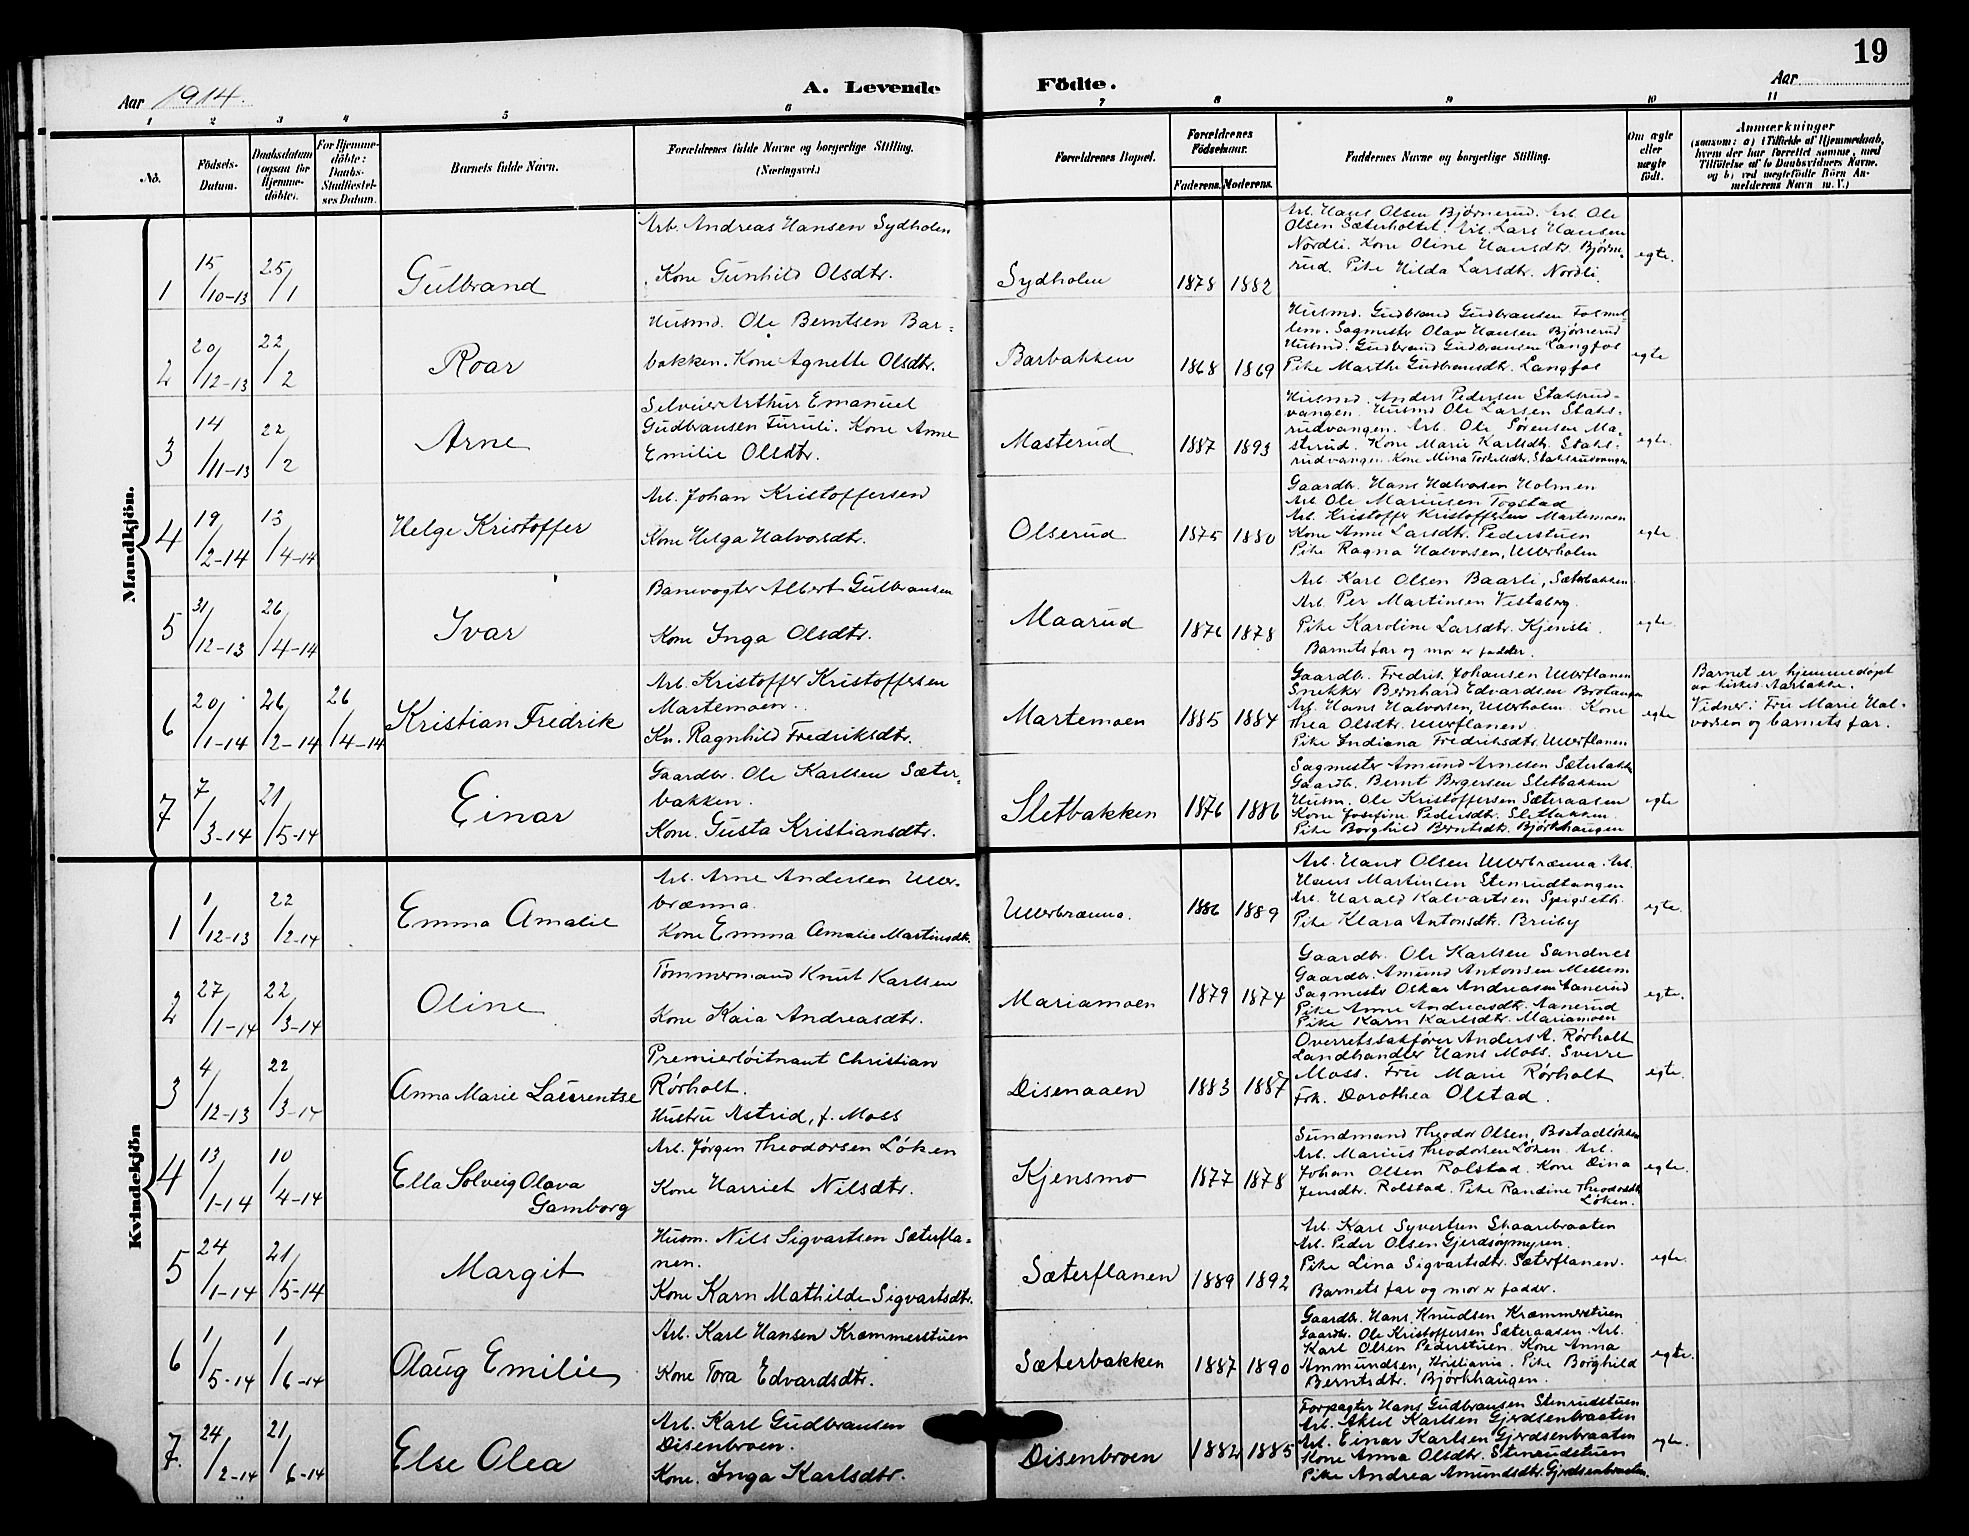 19
Aar 1914.
A. Levende Födte.
Aar
1 2 3 4 5 6 7 8 9 10 11
No.
Födsels-
Datum.
Daabsdatum
(ogsaa for
Hjemme-
döbte).
For Hjemme-
döbte:
Daabs-
Stadfæstel-
ses Datum.
Barnets fulde Navn.
Forældrenes fulde Navne og borgerlige Stilling.
(Næringsvei.)
Forældrenes Bopæl.
Forældrenes
Födselsaar.
Faderens. Moderens.
Faddernes Navne og borgerlige Stilling.
Om ægte
eller
uægte
födt.
Anmærkninger
(saasom: a) i Tilfælde af Hjemmedaab,
hvem der har forrettet samme, med
Tilföielse af to Daabsvidners Navne.
og b) ved uægtefödte Börn An-
melderens Navn m. V.)
Mandkjön.
1
15/10-13
25/1
Gulbrand
Arb. Andreas Hansen Sydholen
Kone Gunhild Olsdtr.
Sydholen
1878 1882
Arb. Hans Olsen Bjørnerud. Arb. Ole
Olsen Sæterholtet. Arb. Lars Hansen
Nordli. Kone Oline Hansdtr. Bjørne-
rud. Pike Hilda Larsdtr. Nordli
egte.
2
20/12-13
22/2
Roar
Husmd. Ole Berntsen Bar-
bakken. Kone Agnette Olsdtr.
Barbakken
1868 1869
Husmd. Gudbrand Gudbransen
Sagmester Olav Hansen Bjørnerud
Husmd. Gudbrand Gudbransen Langfos
Pike Marthe Gudbransdtr. Langfos
egte
3
14/11-13
22/2
Arne
Selveier Arthur Emanuel
Gudbransen Furuli. Kone Anne
Emilie Olsdtr.
Masterud
1887 1893
Husmd. Anders Pedersen Stalsrud-
vangen. Husmd Ole Larsen Stals-
rudvangen. Arb. Ole Sørensen Ma-
sterud. Kone Marie Karlsdtr. Stals-
rudvangen. Kone Mina Torkildtr. Stalsrudvangen
egte.
4
19/2-14
13/4-14
Helge Kristoffer
Arb. Johan Kristoffersen
Kone Helga Halvorsdtr.
Olserud
1875 1880
Gaardbr. Hans Halvorsen Holmen
Arb. Ole Mariusen Togstad
Arb. Kristoffer Kristoffersen Martemoen
Kone Anne Larsdtr. Pederstuen
Pike Ragna Halvorsen, Ullerholen
egte.
5
31/12-13
26/4-14
Ivar
Banevogter Albert Gulbransen
Kone Inga Olsdtr.
Maarud
1876 1878
Arb. Karl Olsen Baarli, Sæterbakken
Arb. Per Martinsen Vestaberg.
Pike Karoline Larsdtr. Kjensli.
Barnets far og mor er fadder.
egte.
6
20/1-14
26/2-14
26/4-14
Kristian Fredrik
Arb. Kristoffer Kristoffersen
Martemoen.
Kn. Ragnhild Fredriksdtr.
Martemoen
1885 1884
Gaardb. Fredrik Johansen Ullerflanen
Snekker Bernhard Edvardsen Brotangen
Arb. Hans Halvorsen, Ullerholen. Kone
Thea Olsdtr. Ullerflanen.
Pike Indiana Fredriksdtr. Ullerflanen
egte
Barnet er hjemmedøpt
av kirkes. Aarbakke.
Vidner: Fru Marie Hal-
vorsen og barnets far.
7
7/3-14
21/5-14
Einar
Gaardbr. Ole Karlsen Sæter-
bakken.
Kone. Gusta Kristiansdtr.
Sletbakken
1876 1886
Sagmester Amund Arnesen Sæterbakken
Gaardb. Bernt Bergersen Sletbakken
Husm. Ole Kristoffersen Sæteraasen
Kone Josefine Pedersdtr. Sletbakken.
Pike Borghild Berntsdtr. Bjørkhaugen
egte
Kvindekjön
1
1/12-13
22/2-14
Emma Amalie
Arb. Arne Andersen Uller-
brænna.
Kone Emma Amalie Martinsdtr.
Ullerbrænna.
1886 1889
Arb. Hans Olsen Ullerbrænna. Arb.
Hans Martinsen Stenrudtangen
Arb. Harald Kalvartsen Spigseth.
Pike Klara Antonsdtr. Bruby
egte.
2
27/1-14
22/3-14
Oline
Tømmermand Knut Karlsen
Kone Kaia Andreasdtr.
Mariamoen
1879 1874
Gaardbr. Ole Karlsen Sandnes
Gaardbr. Amund Antonsen Mellem
Sagmester Oskar Andreasen Aanerud
Pike Anne Andreasdtr. Aanerud
Pike Karn Karlsdtr. Mariamoen
egte.
3
4/12-13
22/3-14
Anna Marie Laurentse
Premierløitnant Christian
Rørholt.
Hustru Astrid, f. Moss
Disenaaen
1883 1887
Overretssakfører Anders A. Rørholt
Landhandler Hans Moss. Sverre
Moss. Fru Marie Rørholt
Frk. Dorothea Olstad.
egte.
4
13/1-14
10/4-14
Ella Solveig Olava
Gamborg
Arb. Jørgen Theodorsen Løken
Kone Harriet Nilsdtr.
Kjensmo
1877 1878
Sundmand Theodor Olsen, Bostadløkken
Arb. Marius Theodorsen Løken. Arb.
Johan Olsen Rolstad. Kone Dina
Jensdtr. Rolstad. Pike Randine Theodorsdtr.
Løken.
egte.
5
24/1-14
21/5-14
Margit
Husm. Nils Sigvartsen Sæterfla-
nen.
Kone Karn Mathilde Sigvartsdtr.
Sæterflanen
1889 1892
Arb. Karl Syvertsen Skaarebraaten
Arb. Peder Olsen Gjerdsøymyren.
Pike Lina Sigvartsdtr. Sæterflanen.
Barnets far og mor er fadder.
egte.
6
1/5-14
1/6-14
Olaug Emilie
Arb. Karl Hansen Kræmmerstuen
Kone Tora Edvardsdtr.
Sæterbakken
1887 1890
Gaardbr. Hans Knudsen Kræmmerstuen
Gaardbr. Ole Kristoffersen Sæteraasen. Arb.
Karl Olsen Pederstuen. Kone Anna
Ammundsen, Kristiania. Pike Borghild
Berntsdtr. Bjørkhaugen.
egte.
7.
24/2-14
21/6-14
Else Olea
Arb. Karl Gudbransen
Disenbroen.
Kone. Inga Karlsdtr.
Disenbroen
1882 1885
Forpagter Hans Gudbransen Stenrudstuen
Arb. Aksel Karlsen Gjerdsenbraaten
Arb. Einar Karlsen Gjerdsenbraaten
Kone Anna Olsdtr. Stenrudstuen
Pike Andrea Amundsdtr. Gjerdsenbraaten.
egte.